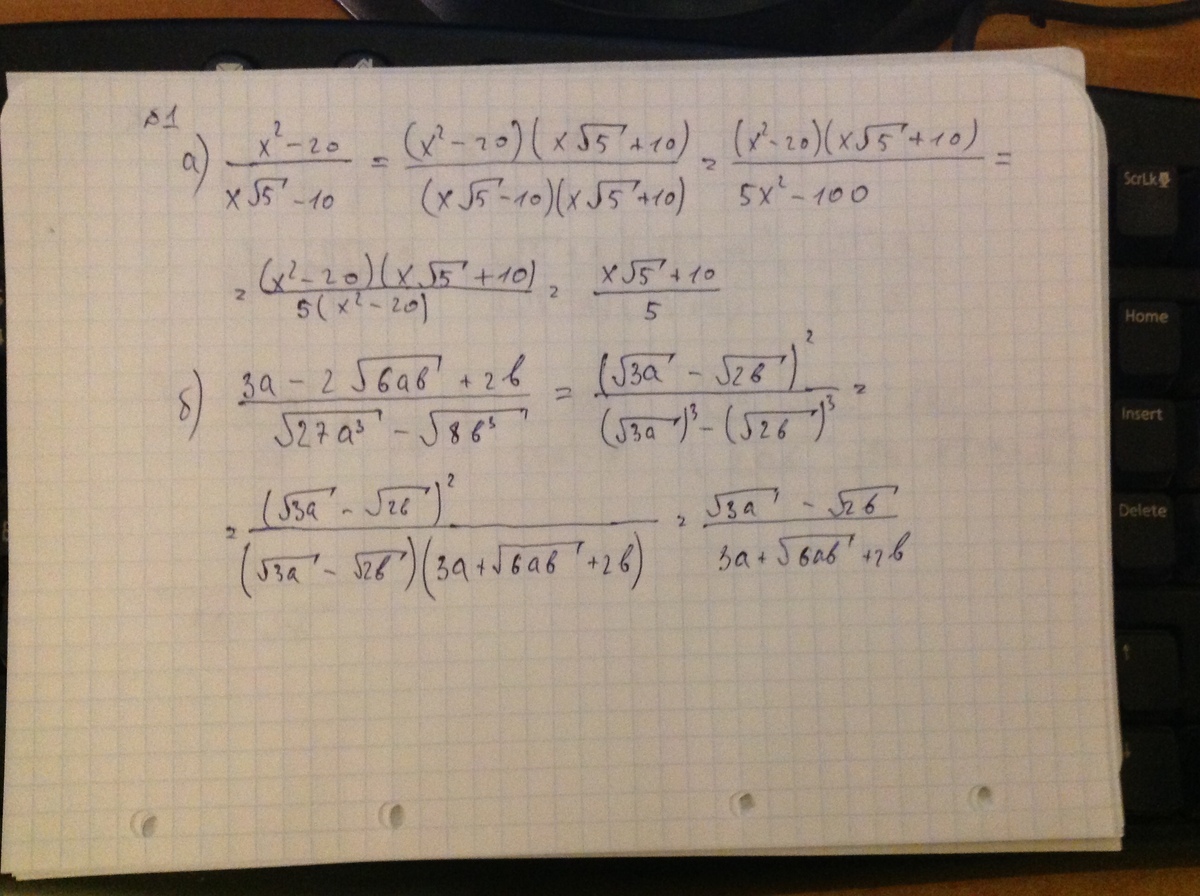 №1
а) (x² - 20)/(x√5 - 10) = ((x² - 20)(x√5 + 10))/((x√5 - 10)(x√5 + 10)) = ((x² - 20)(x√5 + 10))/(5x² - 100) =
= ((x² - 20)(x√5 + 10))/(5(x² - 20)) = (x√5 + 10)/5
б) (3a - 2√(6ab) + 2b)/(√(27a³) - √(8b³)) = (√(3a) - √(2b))²/((√(3a))³ - (√(2b))³) =
= (√(3a) - √(2b))²/((√(3a) - √(2b))(3a + √(6ab) + 2b)) = (√(3a) - √(2b))/(3a + √(6ab) + 2b)
ScrLk
Home
Insert
Delete